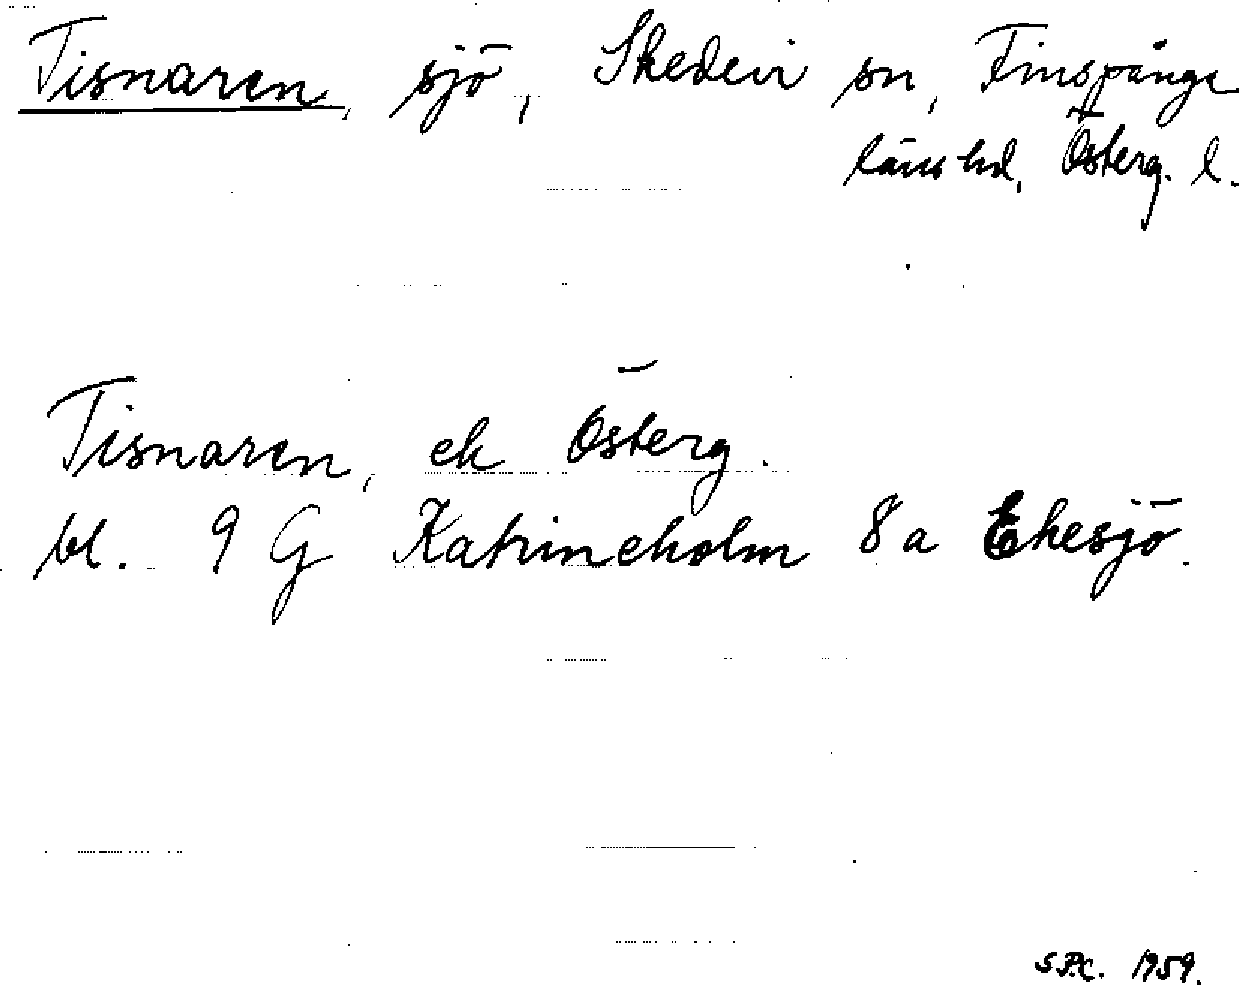 Tisnaren, sjö, Skedevi sn, Finspånga
läns hd, Österg. l.
Tisnaren, ek Österg.
bl. 9 G Katrineholm 8a Ekesjö.
S.P.C. 1959.